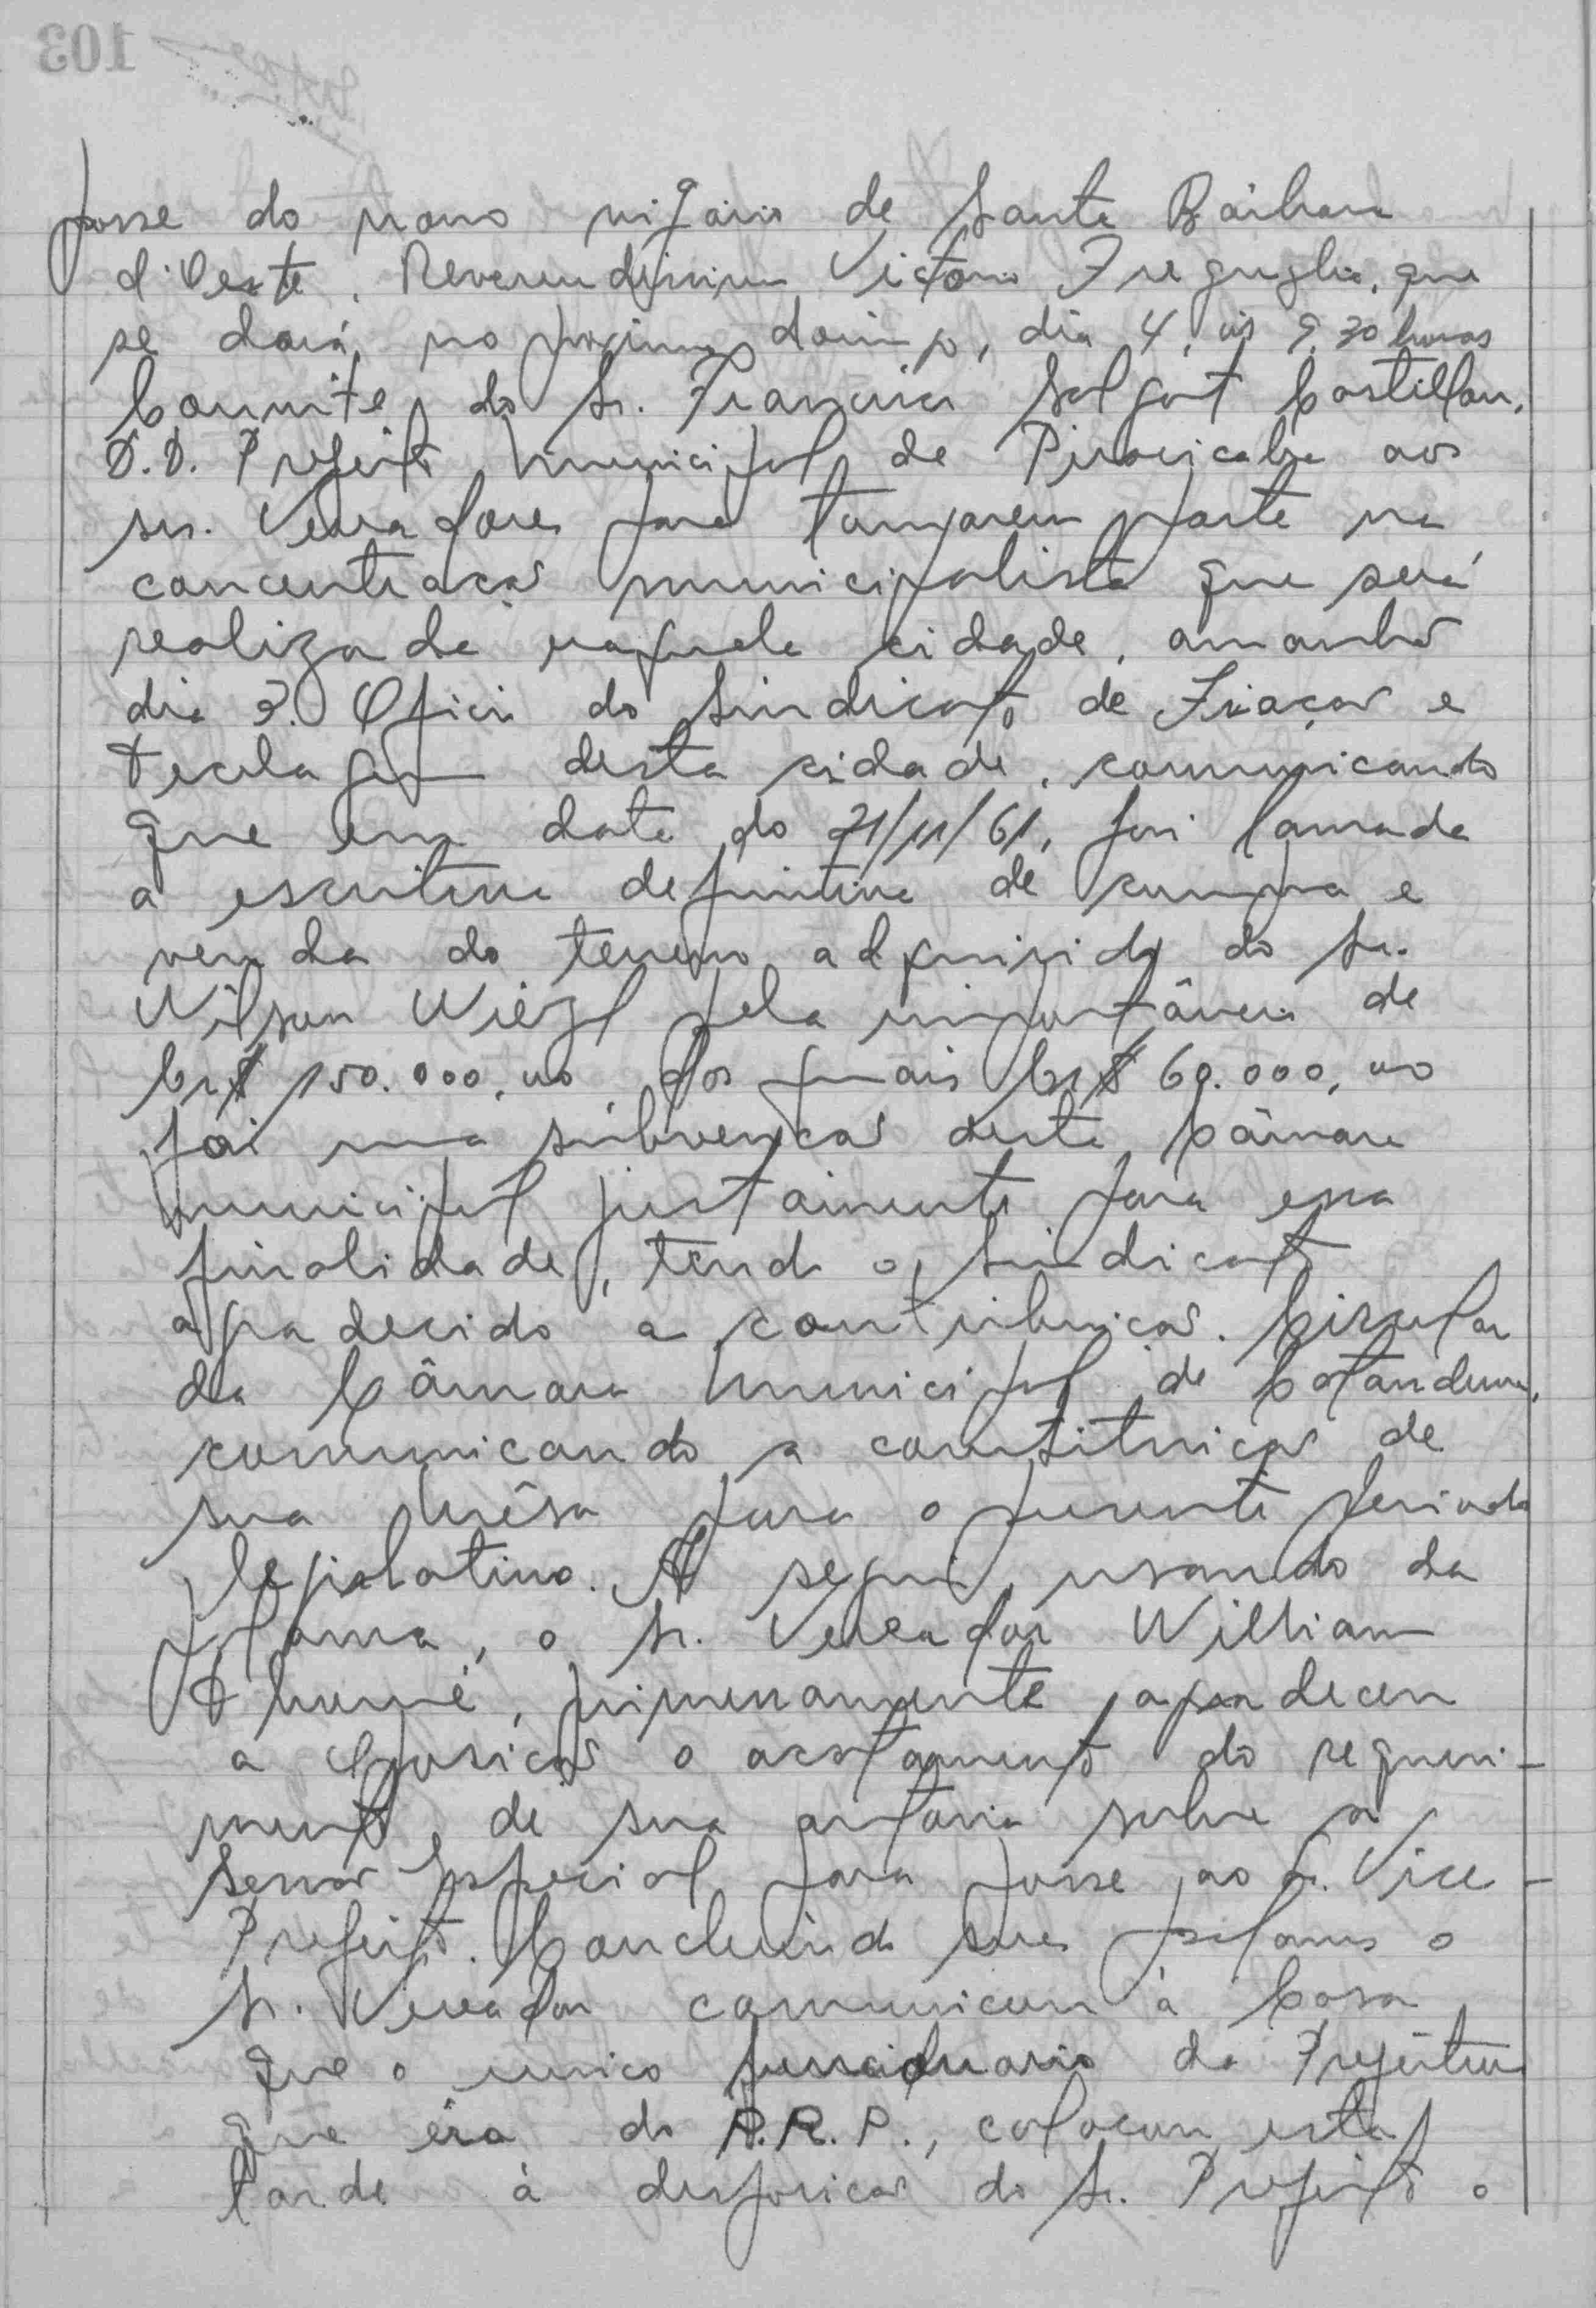 posse do novo vigário de Santa Bárbara
d'Oeste. Reverendissimo Victorio Freguglia, que
se dará, no proximo domingo, dia 4, às 9,30 horas
Convite do Sr. Francisco Salgot Castillon,
D.D. Prefeito Municipal de Piracicaba aos
srs. Vereadores para tomarem parte na
concentração municipalista que será
realizada naquela cidade, amanhã
dia 3. Oficio do Sindicato de Fiação e
Tecelagem desta cidade, comunicando
que em data do 21/11/61, foi lavrada
a escritura definitiva de compra e
venda do terreno adquirido do Sr.
Wilson Wiezl pela importância de
Cr$ 150.000,00, dos quais Cr$ 60.000,00
foi uma subvenção desta Câmara
Municipal justamente para essa
finalidade, tendo o Sindicato
agradecido a contribuição. Circular
da Câmara Municipal de Catanduva,
comunicando a constituição de
sua Mêsa para o presente periodo
legislativo. A seguir, usando da
palavra, o Sr. Vereador William
Thomé, primeiramente, agradeceu
a Oposição o acatamento do requeri-
mento, de sua autoria sobre a
Sessão Especial para posse ao Sr. Vice-
Prefeito. Concluindo suas palavras o
Sr. Vereador comunicou à Casa
que o unico funcionario da Prefeitura
que éra do P.R.P., colocou esta
tarde à disposição do Sr. Prefeito o